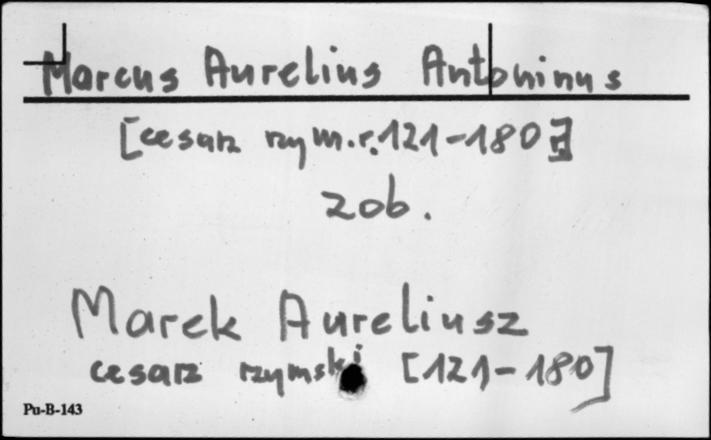 Marcus Aurelius Antoninus
[cesarz rzym. r. 121-180]
zob.
Marek Aureliusz
cesarz rzymski [121-180]
Pu-B-143